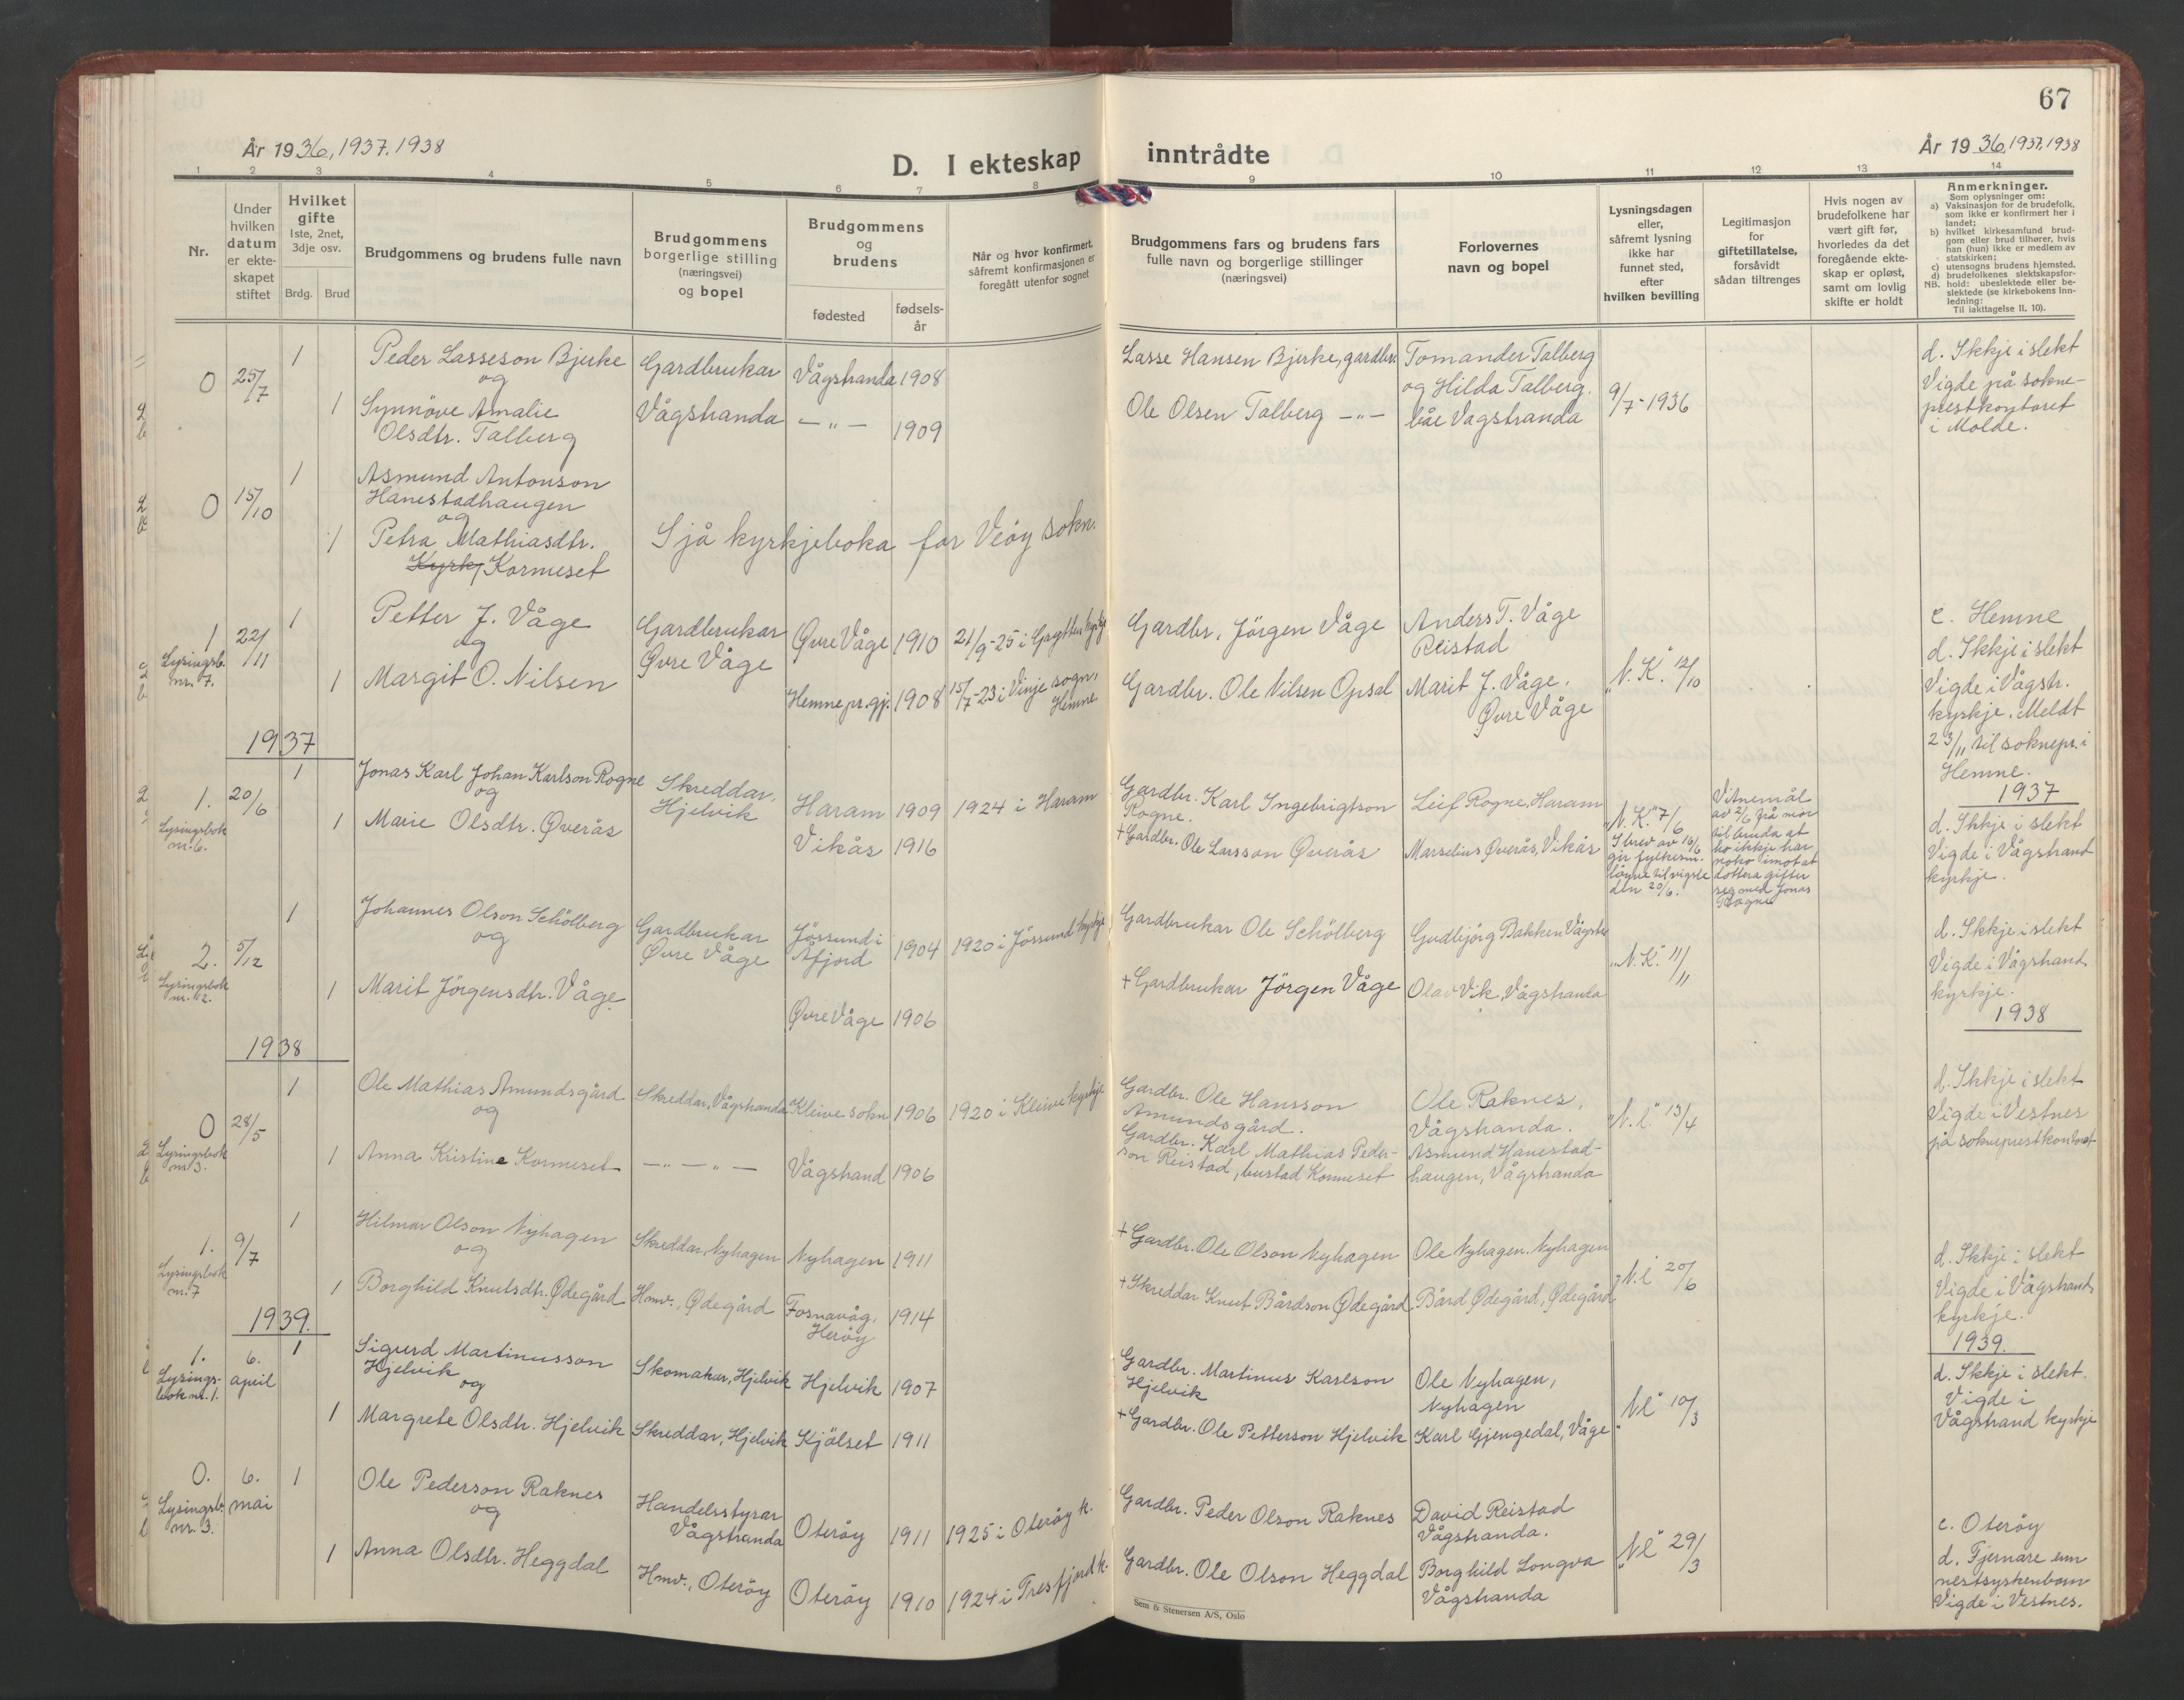 67
År 1936, 1937. 1938
D. I ekteskap
inntrådte
År 1936, 1937, 1938
1 2 3 4 5 6 7 8 9 10 11 12 13 14
Nr.
Under
hvilken
datum
er ekte-
skapet
stiftet
Hvilket
gifte
1ste, 2net,
3dje osv.
Brdg. Brud
Brudgommens og brudens fulle navn
Brudgommens
borgerlige stilling
(næringsvei)
og bopel
Brudgommens
og
brudens
fødested
fødsels-
år
Når og hvor konfirmert,
såfremt konfirmasjonen er
foregått utenfor sognet
Brudgommens fars og brudens fars
fulle navn og borgerlige stillinger
(næringsvei)
Forlovernes
navn og bopel
Lysningsdagen
eller,
såfremt lysning
ikke har
funnet sted,
efter
hvilken bevilling
Legitimasjon
for
giftetillatelse,
forsåvidt
sådan tiltrenges
Hvis nogen av
brudefolkene har
vært gift før,
hvorledes da det
foregående ekte-
skap er opløst,
samt om lovlig
skifte er holdt
Anmerkninger.
Som oplysninger om:
a) Vaksinasjon for de brudefolk,
som ikke er konfirmert her i
landet;
b) hvilket kirkesamfund brud-
gom eller brud tilhører, hvis
han (hun) ikke er medlem av
statskirken;
c) utensogns brudens hjemsted.
d) brudefolkenes slektskapsfor-
NB. hold: ubeslektede eller be-
slektede (se kirkebokens Inn-
ledning:
Til iakttagelse II. 10).
0 25/7 1
Peder Lasseson Bjerke
og
1 Synnöve Amalie
Olsdtr. Talberg
Gardbrukar
Vågstranda
Vågstranda 1908
— „ — 1909
Lasse Hansen Bjerke, gardbr.
Ole Olsen Talberg —„—
Tomander Talberg
og Hilda Talberg.
båe Vågstranda
9/7-1936
d. Ikkje i slekt
Vigde på sokne-
prestkontoret
i Molde.
0 15/10 1
Asmund Antonson
Hanestadhaugen
og
1 Petra Mathiasdtr.
Kyrkj Kormeset
Sjå kyrkjeboka for Veöy sokn.
1 22/11 1
Lysingsb.
nr. 7.
Petter J. Våge
og
1 Margit O. Nilsen
Gardbrukar
Øvre Våge
Øvre Våge 1910 21/9-25 i Grytten kyrkje
Hemne pr.gj. 1908 15/7-23 i Vinje sogn,
Hemne
Gardbr. Jörgen Våge
Gardbr. Ole Nilsen Opsal
Anders T. Våge
Reistad
Marit J. Våge.
Øvre Våge
„N. K." 12/10
c. Hemne
d. Ikkje i slekt
Vigde i Vågstr.
kyrkje. Meldt
23/11 til soknepr. i
Hemne.
1937
1. 20/6 1
Lysingsbok
nr. 6.
Jonas Karl Johan Karlson Rogne
og
1 Marie Olsdtr. Øverås
Skreddar,
Hjelvik
Haram 1909 1924 i Haram
Vikås 1916
Gardbr. Karl Ingebrigtson
Rogne.
+ Gardbr. Ole Larsson Øverås
Leif Rogne, Haram
Marselius Øverås, Vikås
„N. K." 7/6
I brev av 16/6
gir fylkesm.
löyve til vigsle
den 20/6.
Vitnemål
av 2/6 frå mor
til bruda at
ho ikkje har
noko imot at
dottera gifter
seg med Jonas
Rogne
1937
d. Ikkje i slekt
Vigde i Vågstrand
kyrkje.
2. 5/12 1
Lysingsbok
nr. 12.
Johannes Olson Schölberg
og
1 Marit Jörgensdtr. Våge.
Gardbrukar
Øvre Våge
Jössund i
Åfjord 1904 1920 i Jössund kyrkje
Øvre Våge 1906
Gardbrukar Ole Schölberg
+ Gardbrukar Jörgen Våge
Gudbjörg Bakken Vågstr.
Olav Vik, Vågstranda
„N. K." 11/11
d. Ikkje i slekt
Vigde i Vågstrand
kyrkje.
1938
1938
0 28/5 1
Lysingsbok
nr 3.
Ole Mathias Amundsgård
og
1 Anna Kristine Kormeset
Skreddar, Vågstranda
— „ — „ —
Kleive sokn 1906 1920 i Kleive kyrkje
Vågstrand 1906
Gardbr. Ole Hansson
Amundsgård.
Gardbr. Karl Mathias Peder-
son Reistad, bustad Kormeset
Ole Raknes,
Vågstranda.
Asmund Hanestad-
haugen, Vågstranda
„N. l." 13/4
d. Ikkje i slekt
Vigde i Vestnes
på sokneprestkontoret
1. 9/7 1
Lysingsbok
nr. 7
Hilmar Olson Nyhagen
og
1 Borghild Knutsdtr. Ødegård
Skreddar, Nyhagen
Hmv., Ødegård
Nyhagen 1911
Fosnavåg,
Heröy 1914
+ Gardbr. Ole Olson Nyhagen
+ Skreddar Knut Bårdson Ødegård
Ole Nyhagen. Nyhagen
Bård Ødegård, Ødegård
„N. l" 20/6
d. Ikkje i slekt
Vigde i Vågstrand
kyrkje.
1939.
1939.
1. 6. april 1
Lysings-
bok nr. 1.
Sigurd Martinusson
Hjelvik
og
1 Margrete Olsdtr. Hjelvik
Skomakar, Hjelvik
Skreddar, Hjelvik
Hjelvik 1907
Kjölset 1911
Gardbr. Martinus Karlson
Hjelvik
+ Gardbr. Ole Petterson Hjelvik
Ole Nyhagen,
Nyhagen
Karl Gjengedal, Våge
„Nl" 10/3
d. Ikkje i slekt.
Vigde i
Vågstrand kyrkje
0. 6. mai 1
Lysingsb.
nr. 3.
Ole Pederson Raknes
og
1 Anna Olsdtr. Heggdal
Handelsstyrar
Vågstranda
Hmv., Oteröy
Oteröy 1911 1925 i Oteröy k.
Oteröy 1910 1924 i Tresfjord k.
Gardbr. Peder Olson Raknes
Gardbr. Ole Olson Heggdal
David Reistad
Vågstranda.
Borghild Longva
Vågstranda
„Nl" 29/3
c. Oteröy
d. Fjernare enn
nestsyskenborn
Vigde i Vestnes.
Sem & Stenersen A/S, Oslo